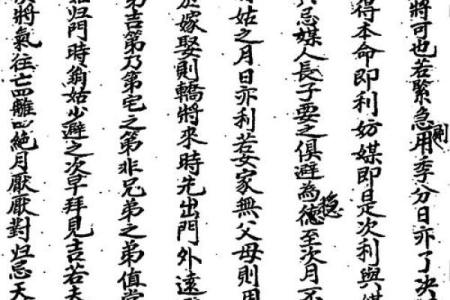 將可也若緊急用季分日亦了决
得本命即利妨媒即是次利與媒
急媒人長子要之俱避為德至次月不
姑之月日亦利若女家無父母則用
嫁娶則轎將來時先出門外遠
弟吉第乃第宅之第非兄弟之弟值堂
归門時翁姑少避之次早拜見吉若夫
將氣往亡四離四絶月厭厭對归忌天